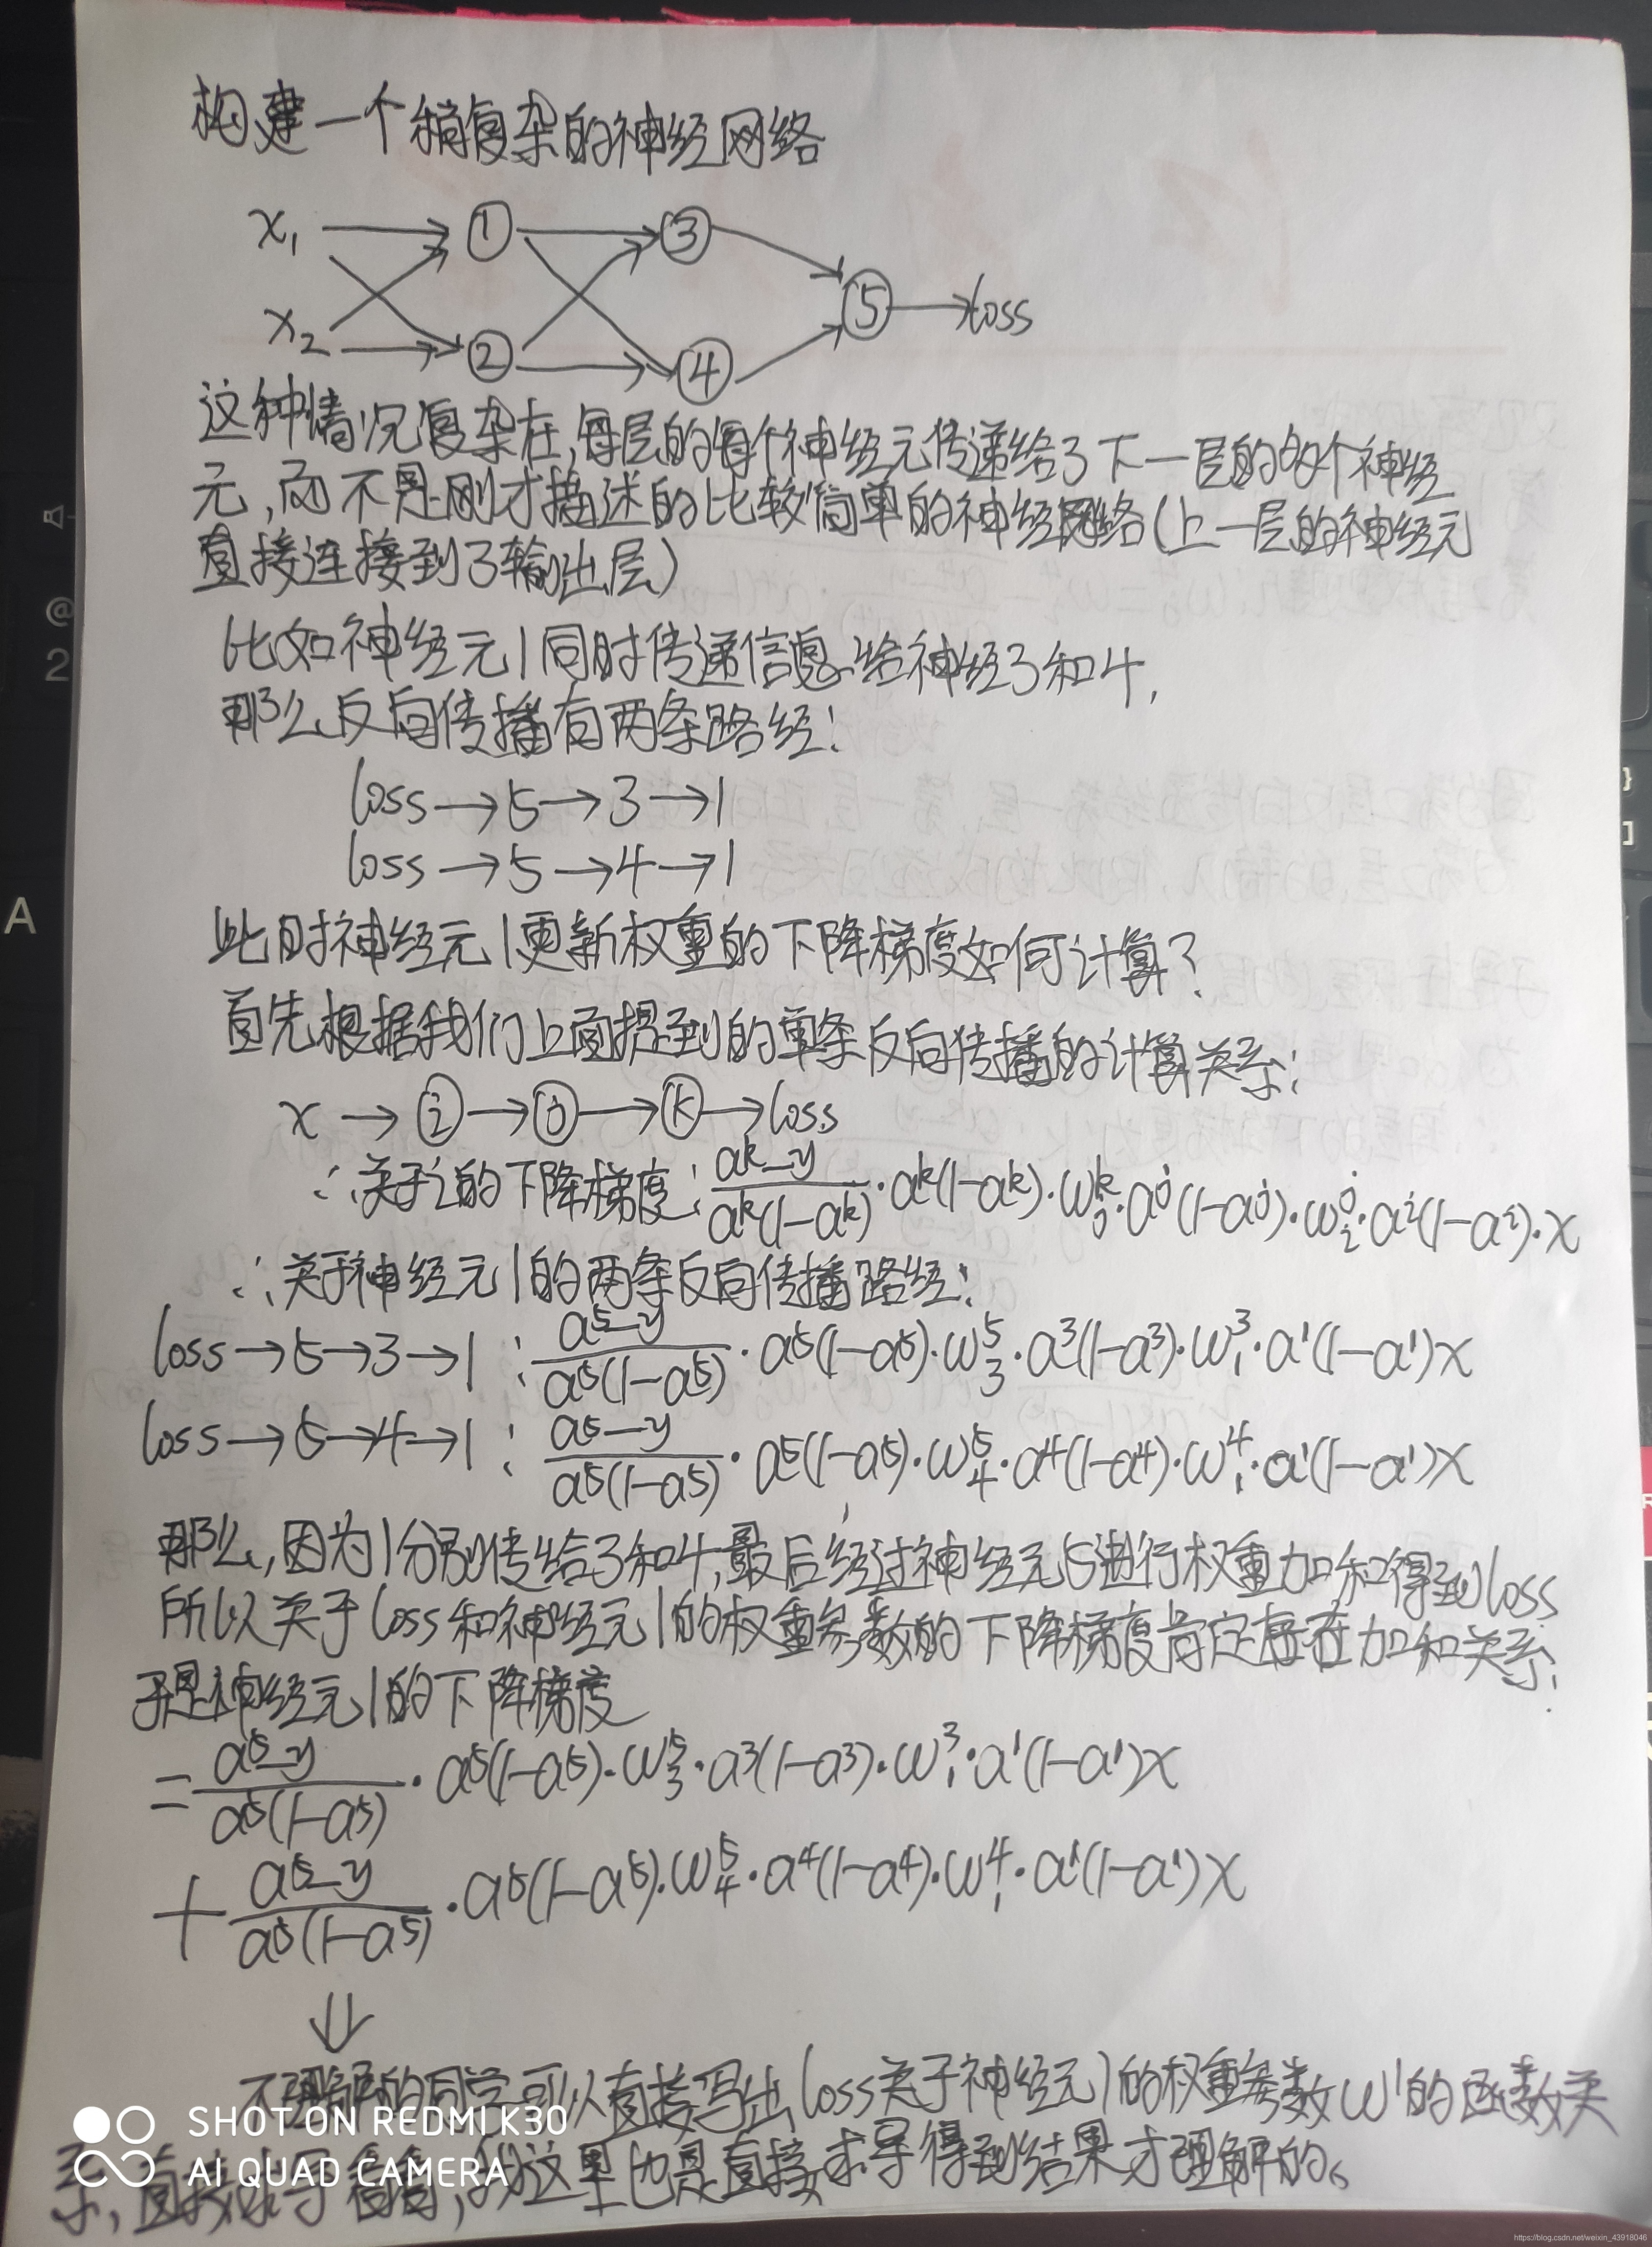 构建一个稍复杂的神经网络
x₁ → ① → ③
⑤ → loss
x₂ → ② → ④
这种情况复杂在,每层的每个神经元传递给了下一层的多个神经
元,而不是刚才描述的比较简单的神经网络(上一层的神经元
直接连接到了输出层)
比如神经元1同时传递信息给神经3和4,
那么反向传播有两条路经:
loss→5→3→1
loss→5→4→1
此时神经元1更新权重的下降梯度如何计算?
首先根据我们上面提到的单条反向传播的计算关系:
x → ⓘ → ⓙ → ⓚ → loss
∴关于i的下降梯度: (aᵏ-y)/(aᵏ(1-aᵏ)) · aᵏ(1-aᵏ) · wⱼᵏ · aʲ(1-aʲ) · wᵢʲ · aⁱ(1-aⁱ) · x
∴关于神经元1的两条反向传播路经:
loss→5→3→1 : (a⁵-y)/(a⁵(1-a⁵)) · a⁵(1-a⁵) · w₃⁵ · a³(1-a³) · w₁³ · a¹(1-a¹)x
loss→5→4→1 : (a⁵-y)/(a⁵(1-a⁵)) · a⁵(1-a⁵) · w₄⁵ · a⁴(1-a⁴) · w₁⁴ · a¹(1-a¹)x
那么,因为1分别传给3和4,最后经过神经元5进行权重加和得到loss
所以关于loss和神经元1的权重参数的下降梯度肯定存在加和关系.
于是神经元1的下降梯度
= (a⁵-y)/(a⁵(1-a⁵)) · a⁵(1-a⁵) · w₃⁵ · a³(1-a³) · w₁³ · a¹(1-a¹)x
+ (a⁵-y)/(a⁵(1-a⁵)) · a⁵(1-a⁵) · w₄⁵ · a⁴(1-a⁴) · w₁⁴ · a¹(1-a¹)x
⇓
不理解的同学可以直接写出loss关于神经元1的权重参数w¹的函数关
系,直接求导看看,我这里也是直接求导得到结果才理解的。
SHOT ON REDMI K30
AI QUAD CAMERA
@
2
A
}
]
https://blog.csdn.net/weixin_43918046